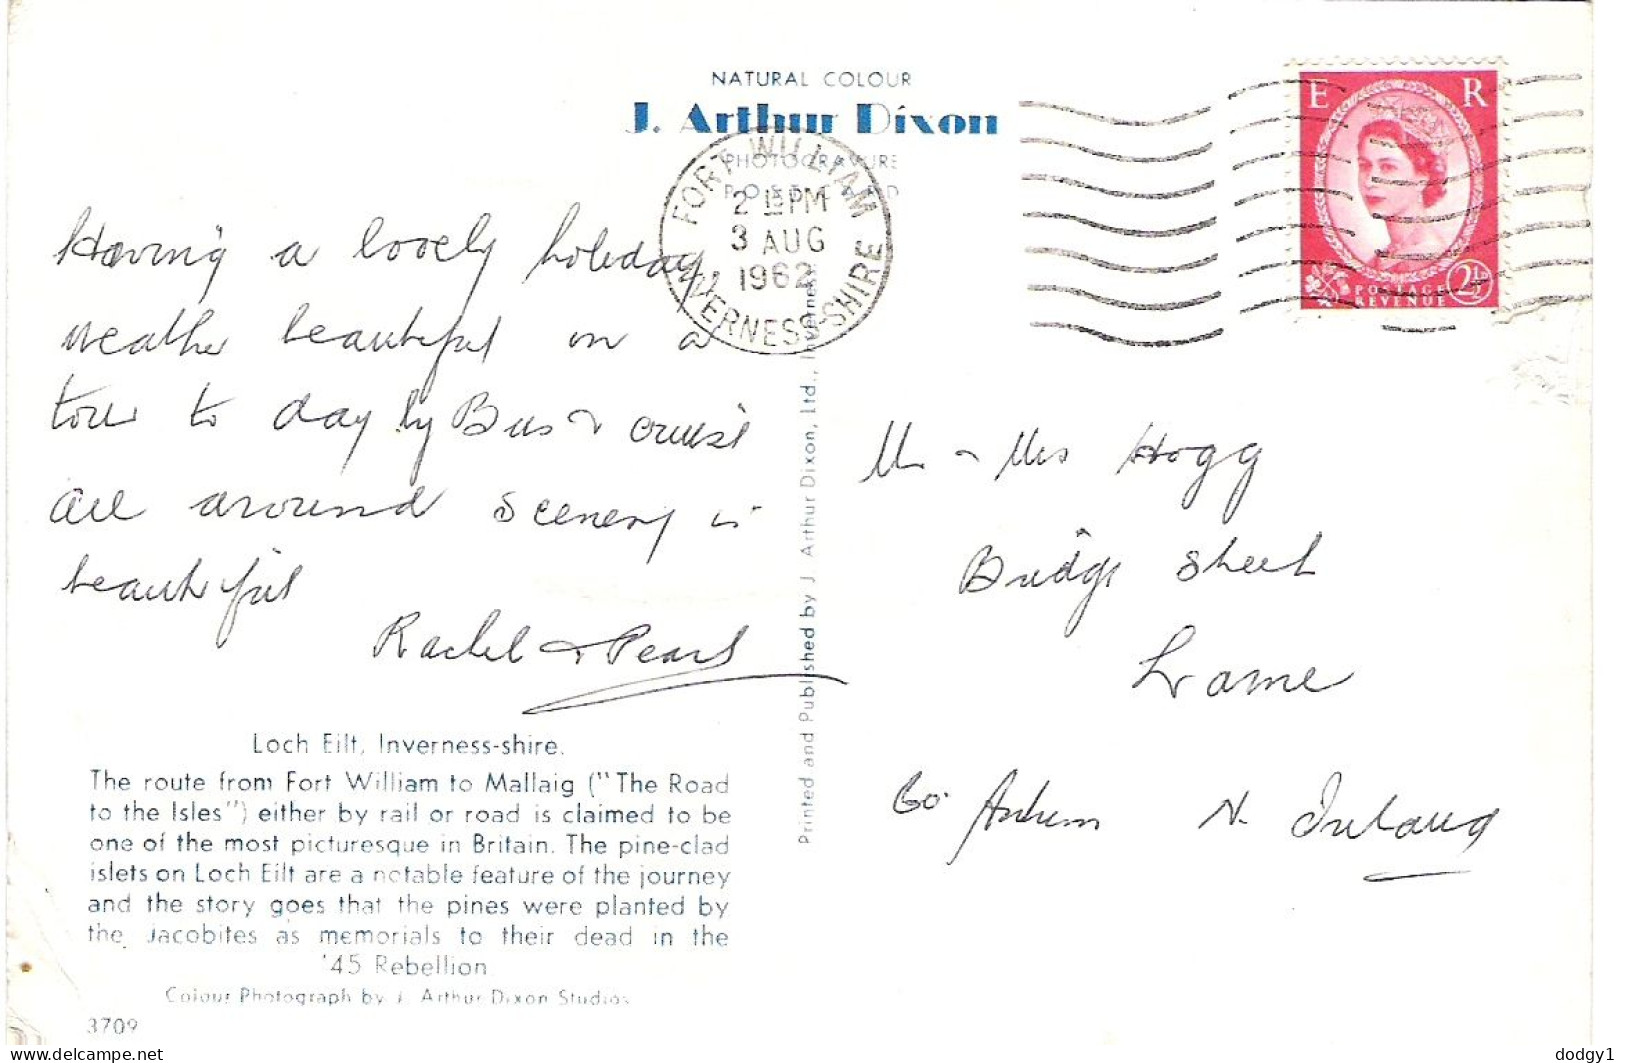 NATURAL COLOUR
J. Arthur Dixon
PHOTOGRAVURE
FORT WILLIAM
2 15 PM
3 AUG
1962
INVERNESS-SHIRE
E R
POSTAGE
REVENUE
2½D
Having a lovely holiday,
weather beautiful on a
tour to day by Bus & cruise
all around scenery is
beautiful
Rachel & Pearl
Mr & Mrs Hogg
Bridge Street
Larne
Co. Antrim N. Ireland
Printed and Published by J. Arthur Dixon, Ltd., Inverness
Loch Eilt, Inverness-shire.
The route from Fort William to Mallaig ("The Road
to the Isles") either by rail or road is claimed to be
one of the most picturesque in Britain. The pine-clad
islets on Loch Eilt are a notable feature of the journey
and the story goes that the pines were planted by
the Jacobites as memorials to their dead in the
'45 Rebellion
Colour Photograph by J. Arthur Dixon Studios
3709
www.delcampe.net
dodgy1